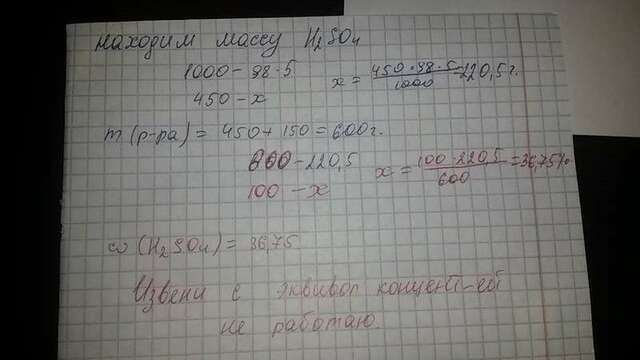 находим массу H₂SO₄
1000 – 98·5    x = 450·98·5/1000 = 220,5г.
450 – x
m (р-ра) = 450 + 150 = 600г.
600 – 220,5    x = 100·220,5/600 = 36,75%
100 – x
ω (H₂SO₄) = 36,75
Извени с эквивал концент-ей
не работаю.